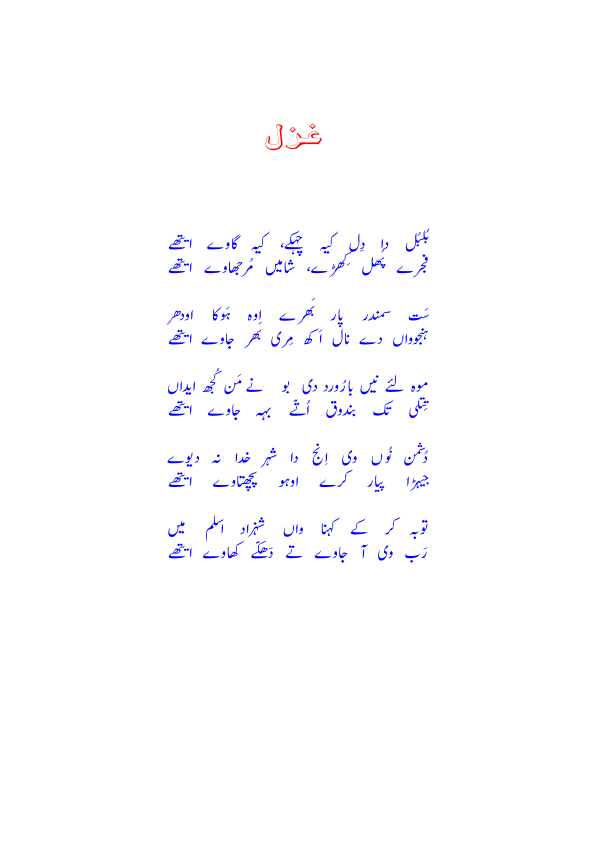 غزل
بُلبُل دا دِل کیہ چہکے، کیہ گاوے ایتھے
فجرے پُھل کِھڑے، شامیں مُرجھاوے ایتھے
سَت سمندر پار بَھرے اِوہ ہَوکا اودھر
ہنجوواں دے نال اَکھ مِری بَھر جاوے ایتھے
موہ لئے نیں بارُورد دی بو نے مَن کُجھ ایداں
تِتلی تک بندوق اُتّے بہہ جاوے ایتھے
دُشمن نُوں وی اِنج دا شہر خدا نہ دیوے
جیہڑا پیار کرے اوہو پچھتاوے ایتھے
توبہ کر کے کہنا واں شہزاد اسلم میں
رَب وی آ جاوے تے دَھکّے کھاوے ایتھے